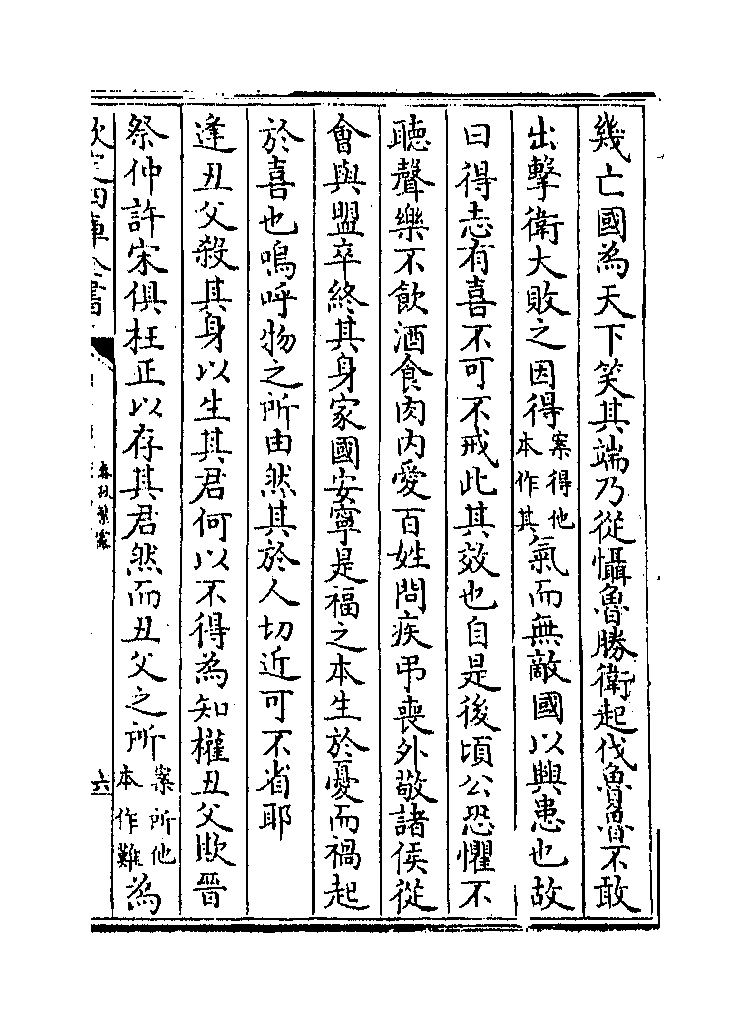 幾亡國為天下笑其端乃從懾魯勝衛起伐魯魯不敢
出擊衛大敗之因得案得他本作其氣而無敵國以興患也故
曰得志有喜不可不戒此其效也自是後頃公恐懼不
聽聲樂不飲酒食肉内愛百姓問疾弔喪外敬諸侯從
會與盟卒終其身家國安寧是福之本生於憂而禍起
於喜也嗚呼物之所由然其於人切近可不省耶
逢丑父殺其身以生其君何以不得為知權丑父欺晋
祭仲許宋俱枉正以存其君然而丑父之所案所他本作難為
欽定四庫全書
春秋繁露
六